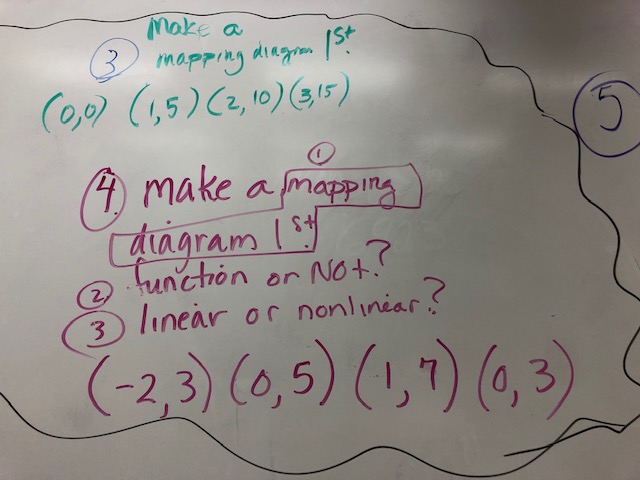 Make a
③ mapping diagram 1st.
(0,0) (1,5) (2,10) (3,15)
5
①
④. make a mapping
diagram 1st.
② function or Not?
③ linear or nonlinear?
(-2,3) (0,5) (1,7) (0,3)